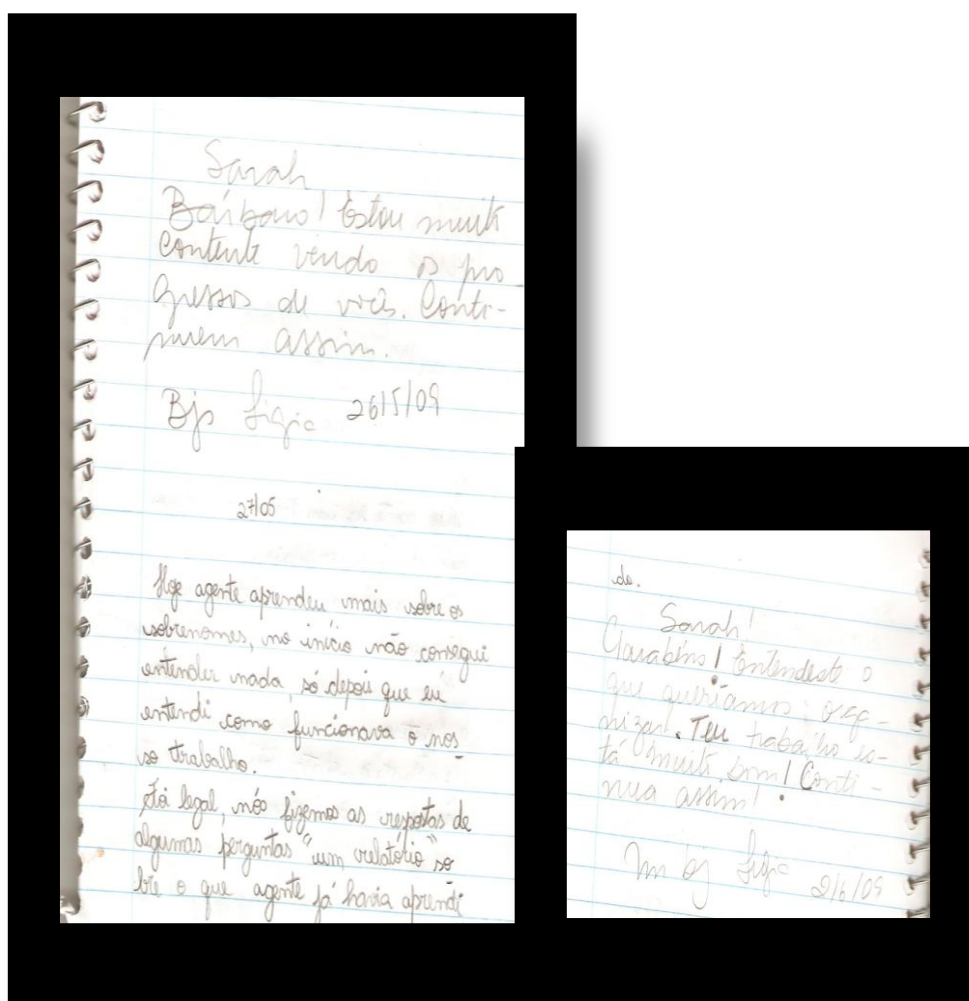 Sarah
Bárbaro! Estou muito
contente vendo os pro
gressos de vocês. Conti-
nuem assim.
Bjs Ligia 26/5/09
27/05
Hoje agente aprendeu mais sobre os
sobrenomes, no início não consegui
entender nada, só depoi que eu
entendi como funcionava o nos
so trabalho.
Foi legal, nós fizemos as respostas de
algumas perguntas "um relatório" so
bre o que agente já havia aprendi
do.
Sarah!
Parabéns! Entendeste o
que queríamos: orga-
nizar. Teu trabalho es-
tá muito bom! Conti-
nua assim!
Um bj Ligia 2/6/09